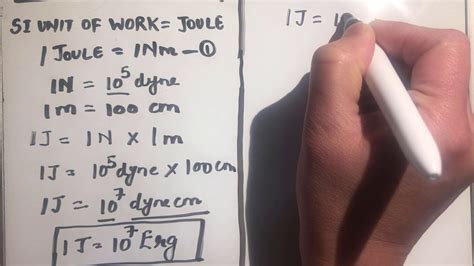 SI UNIT OF WORK = JOULE
1 JOULE = 1Nm - ①
1N = 10⁵ dyne
1m = 100 cm
1J = 1N × 1m
1J = 10⁵ dyne × 100cm
1J = 10⁷ dyne cm
1J = 10⁷ Erg
1J = 1